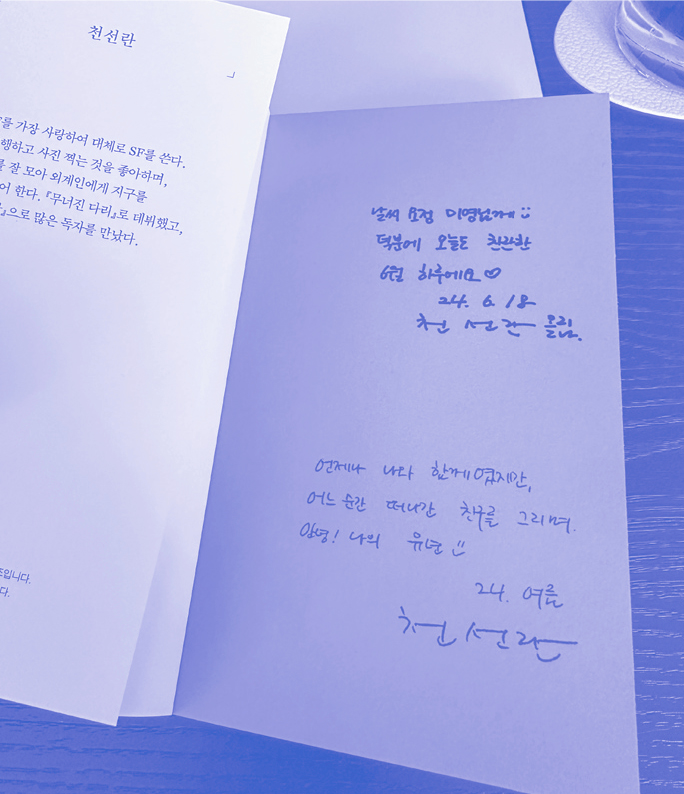 천선란
를 가장 사랑하여 대체로 SF를 쓴다.
행하고 사진 찍는 것을 좋아하며,
를 잘 모아 외계인에게 지구를
어 한다. 『무너진 다리』로 데뷔했고,
』으로 많은 독자를 만났다.
조입니다.
다.
날씨 요정 미영님께
덕분에 오늘도 찬란한
6월 하루에요♡
24. 6. 18
천선란 올림.
언제나 나와 함께였지만,
어느 순간 떠나간 친구를 그리며.
안녕! 나의 유년
24. 여름
천선란